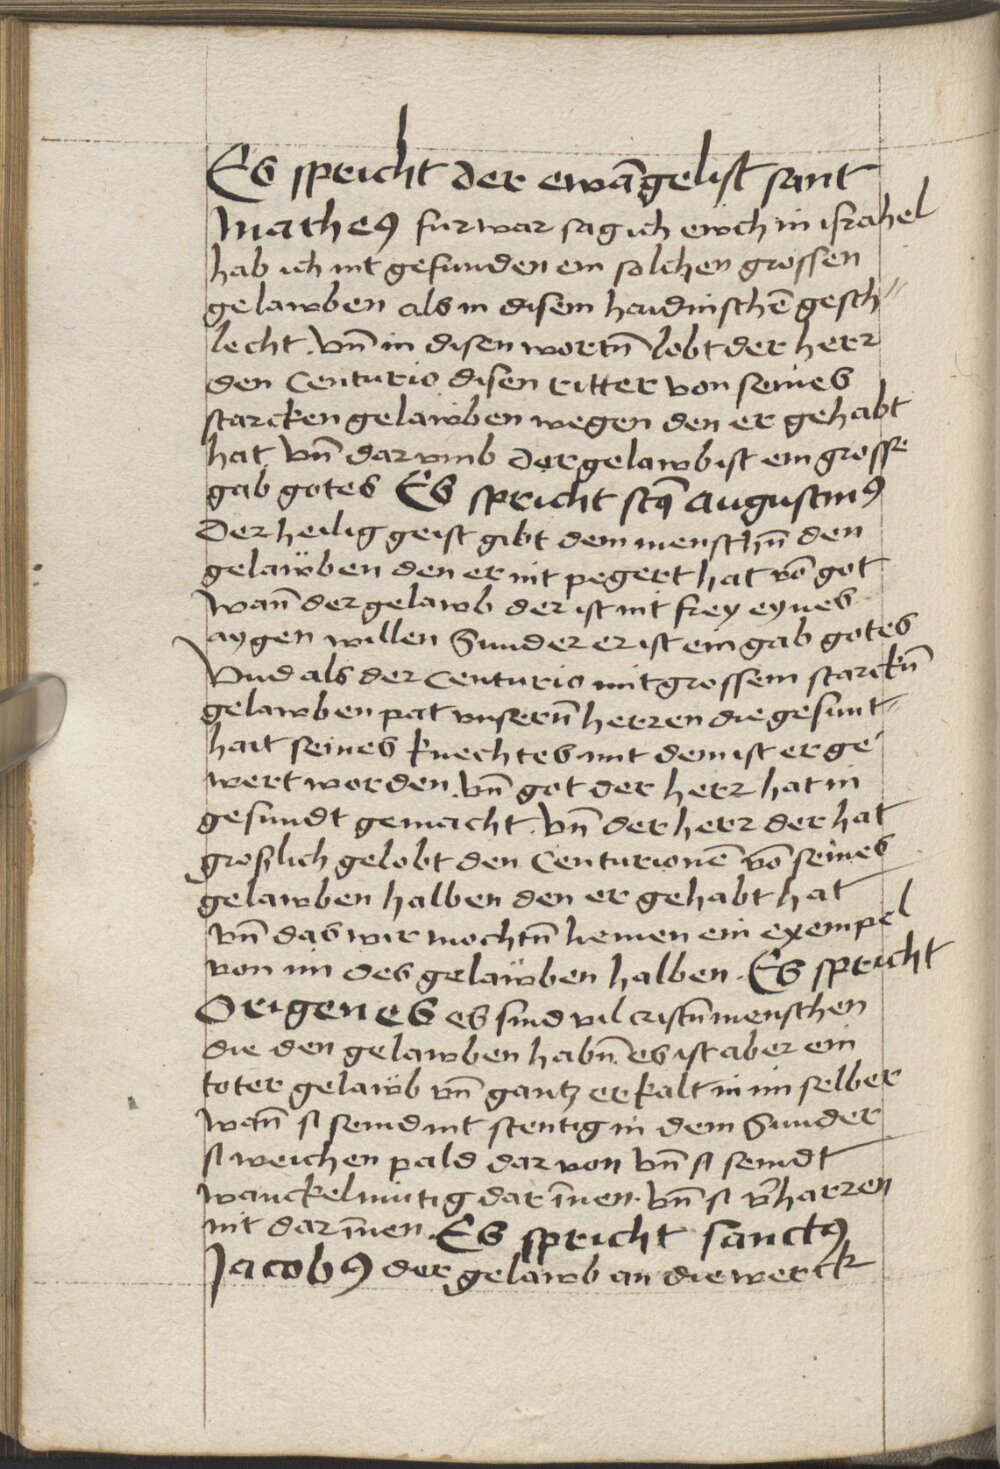 Es spricht der ewāgelist sant
Matheꝰ furwar sag ich ewch in israhel
hab ich nit gefunden ein solchen grossen
gelawben als in disem haidnischē gesch〃
lecht. vn̄ in disen wortn̄ lobt der herr
den Centurio disen ritter von seines
starcken gelawben wegen den er gehabt
hat vn̄ dar vmb der gelawb ist ein grosse
gab gotes Es spricht scꝰ augustinꝰ
Der heilig geist gibt dem menschn̄ den
gelaẅben den er nit pegert hat vō got
wan̄ der gelawb der ist nit frey eynes
aygen willen Sunder er ist ein gab gotes
Vnd als der Centurio mit grossem starckn̄
gelawben pat vnsern̄ herren die gesunt〃
hait seines knechtes mit dem ist er ge
wert worden. vn̄ got der herr hat in
gesundt gemacht. vn̄ der herr der hat
groslich gelobt den Centurionē vō seines
gelawben halben den er gehabt hat
vn̄ das wir mochtn̄ nemen ein exempel
von im des gelaẅben halben. Es spricht
Origenes es sind vil cristn̄menschen
die den gelawben habn̄ es ist aber ein
toter gelaẅb vn̄ gantz erkalt in im selber
wan̄ si seind nit stentig in dem Sunder
si weichen pald dar von vn̄ si seindt
wanckelmutig dar īnen. vn̄ si v̄harren
nit dar īnen. Es spricht sanctꝰ
Jacobꝰ der gelawb an die werck